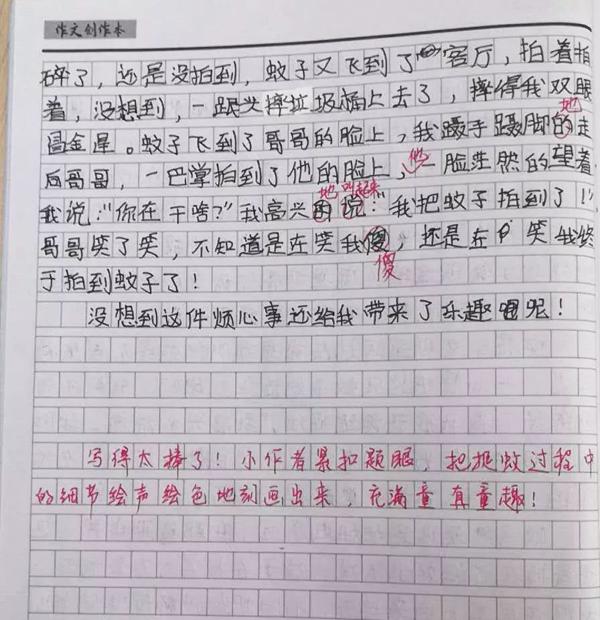 作文创作本
碎了，还是没拍到，蚊子又飞到了客厅，拍着拍
着，没想到，一跟头摔垃圾桶上去了，摔得我双眼
冒金星。蚊子飞到了哥哥的脸上，我蹑手蹑脚地走
后哥哥，一巴掌拍到了他的脸上，他一脸茫然的望着
我说：“你在干啥？”我高兴地叫起来：“我把蚊子拍到了！”
哥哥笑了笑，不知道是在笑我傻，还是在笑我终
傻
于拍到蚊子了！
没想到这件烦心事还给我带来了乐趣呢！
写得太棒了！小作者紧扣题眼，把抓蚊过程中
的细节绘声绘色地刻画出来，充满童真童趣！